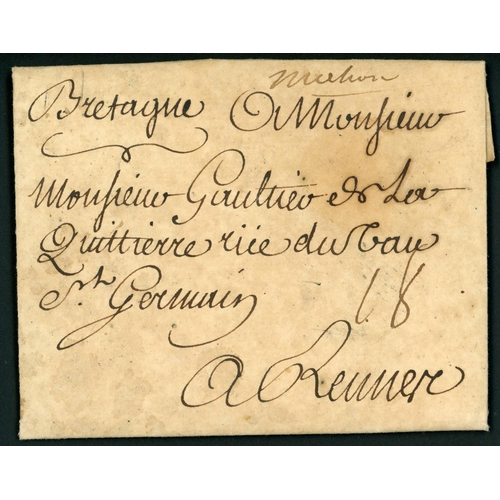 Bretagne A Monsieur
Monsieur Gaultier de La
Quittierre rüe du Bau
St. Germain 18
A Rennes